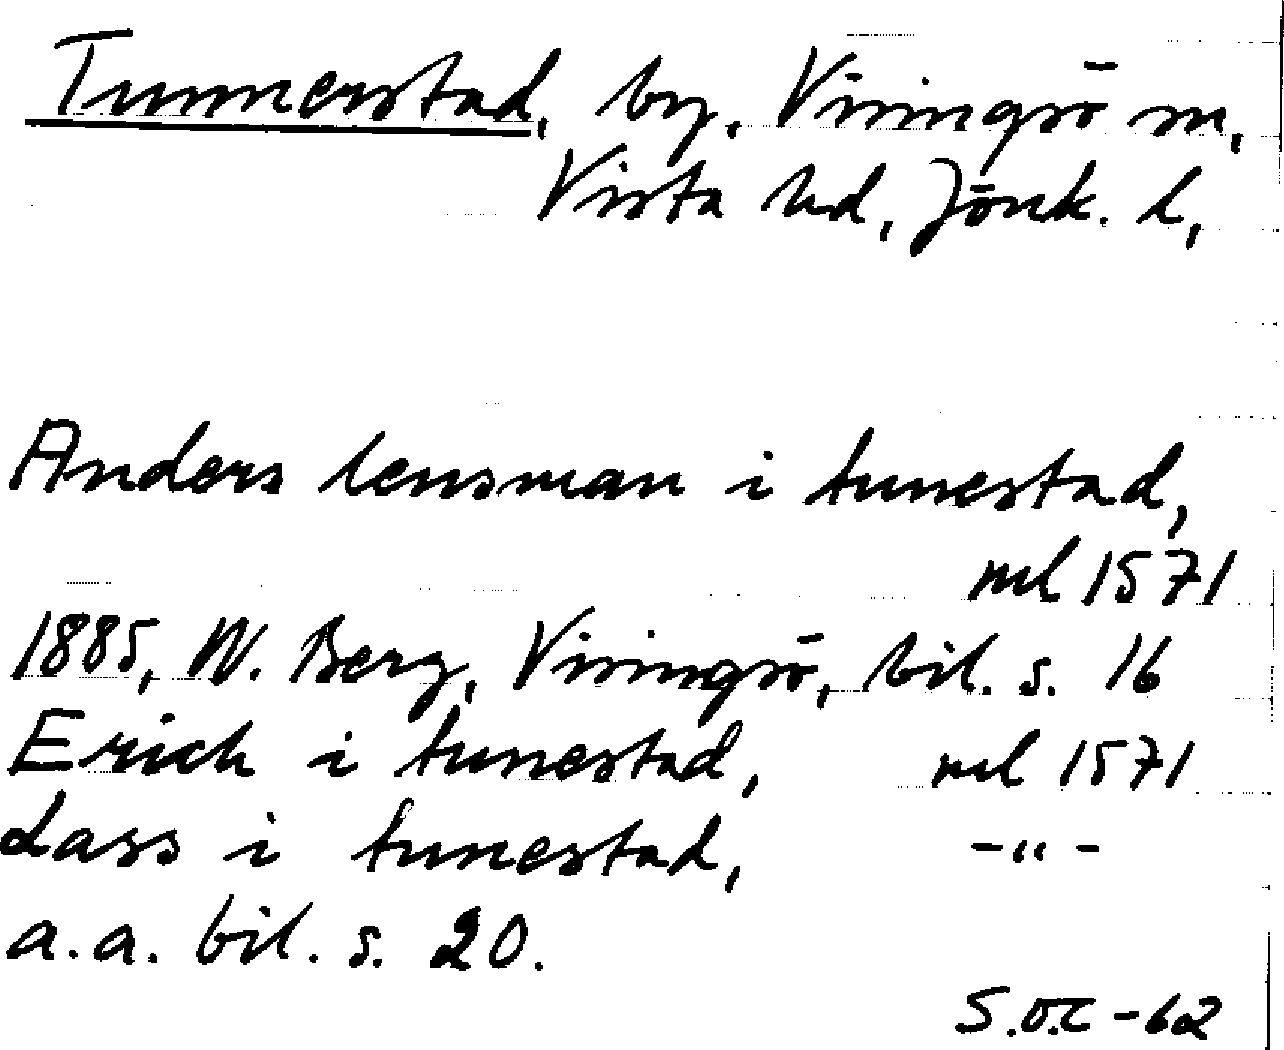 Tunnerstad, by, Visingsö sn,
Vista hd, Jönk. l,
Anders lensman i tunestad,
ml 1571
1885, W. Berg, Visingsö, bil. s. 16
Erich i tunestad, ml 1571
Lass i tunestad, -"-
a.a. bil. s. 20.
S.O.C -62